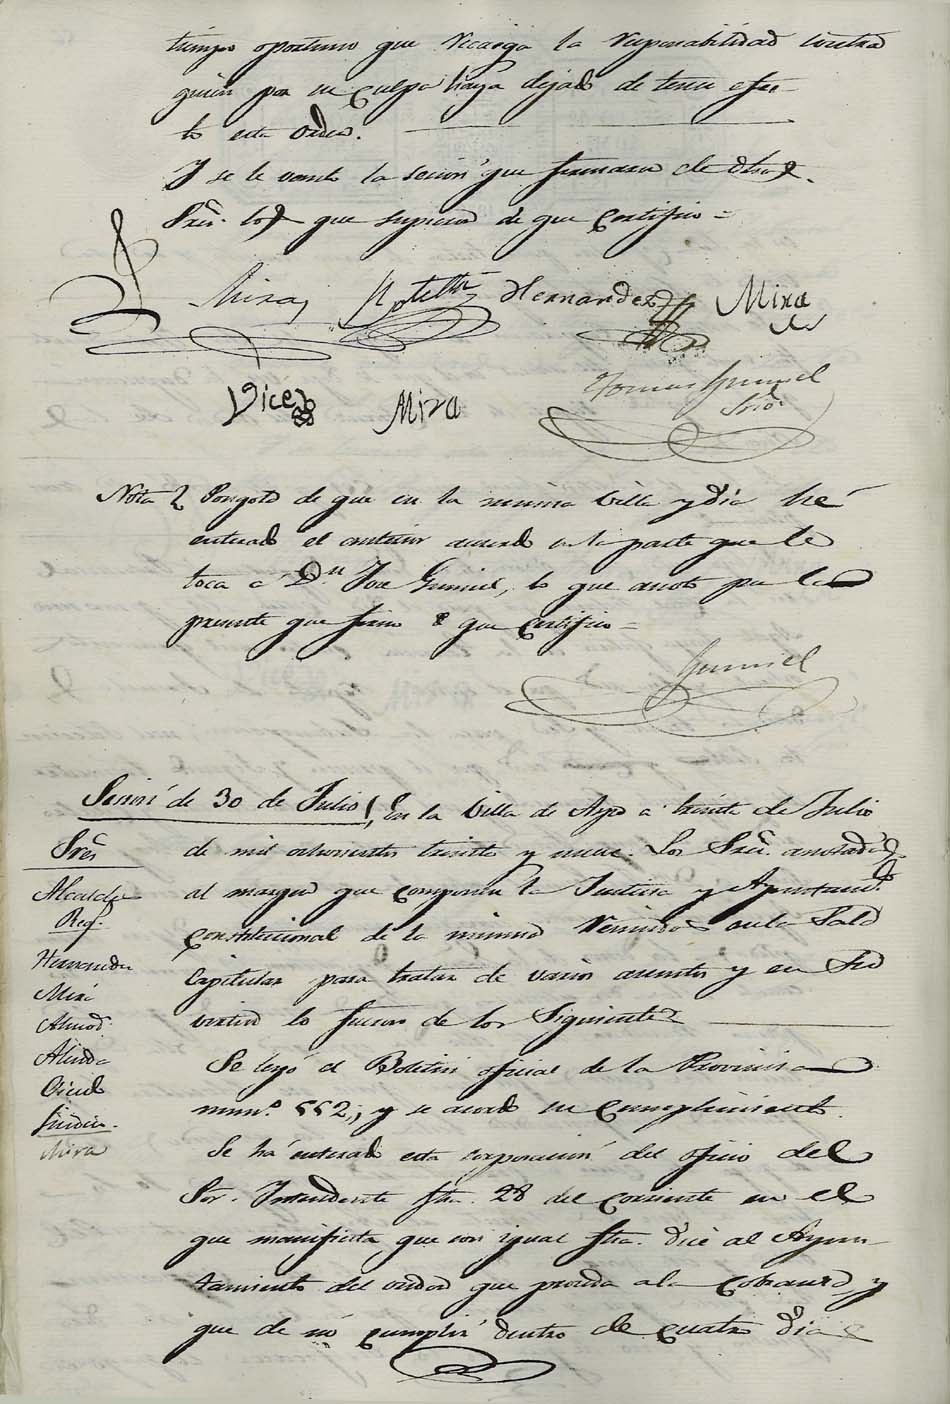 tiempo oportuno que recaiga la responsabilidad contra
quien por su culpa haya dejado de tener efec-
to esta orden.
Y se levantó la sesion que firmaron de dhos
Sres. los que supieron de que certifico =
Mira, Hernandez Mira
Vice Mira
Tomas Gumiel
Srio
Nota Pongola de que en la misma Villa y dia hé
enterado el anterior acuerdo en la parte que le
toca á Dn Jose Gumiel, lo que anoto por la
presente que firmo de que certifico =
Gumiel
Sesion de 30 de Julio En la Villa de Aspe á treinta de Julio
de mil ochocientos treinta y nueve. Los Sres. anotados
al margen que componen la Justicia y Ayuntamto
constitucional de la misma reunidos en la Sala
Capitular para tratar de varios asuntos y en su
virtud lo fueron de los siguientes
Sres
Alcalde
Reg.
Hernandez
Mira
Almod.
Vicente
Sindico.
Mira
Se leyó el Boletin oficial de la Provincia
num.º 552, y se acordó su cumplimiento.
Se há enterado esta corporacion del oficio del
Sor. Intendente fha. 28 del corriente en el
que manifiesta que con igual fha. dice al Ayun-
tamiento del que proceda á la cobranza y
que de nó cumplir dentro de cuatro dias